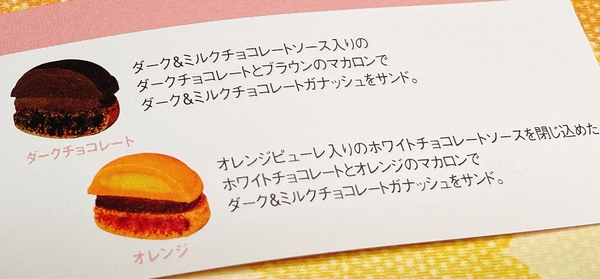 ダーク&ミルクチョコレートソース入りの
ダークチョコレートとブラウンのマカロンで
ダーク&ミルクチョコレートガナッシュをサンド。
ダークチョコレート
オレンジピューレ入りのホワイトチョコレートソースを閉じ込めた
ホワイトチョコレートとオレンジのマカロンで
ダーク&ミルクチョコレートガナッシュをサンド。
オレンジ